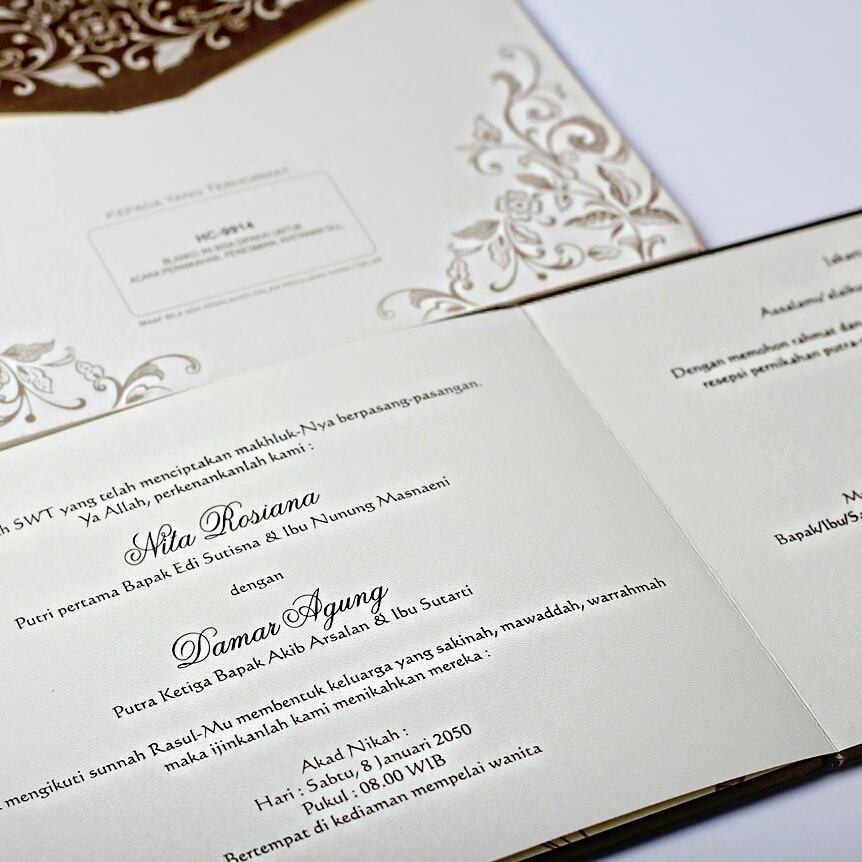 KEPADA YANG TERHORMAT
HC-9914
BLANKO INI BISA DIPAKAI UNTUK
ACARA PERNIKAHAN, PERESMIAN, KHITANAN DLL.
MAAF BILA ADA KESALAHAN DALAM PENULISAN NAMA / GELAR
SWT yang telah menciptakan makhluk-Nya berpasang-pasangan.
Ya Allah, perkenankanlah kami :
Nita Rosiana
Putri pertama Bapak Edi Sutisna & Ibu Nunung Masnaeni
dengan
Damar Agung
Putra Ketiga Bapak Akib Arsalan & Ibu Sutarti
mengikuti sunnah Rasul-Mu membentuk keluarga yang sakinah, mawaddah, warrahmah
maka ijinkanlah kami menikahkan mereka :
Akad Nikah :
Hari : Sabtu, 8 Januari 2050
Pukul : 08.00 WIB
Bertempat di kediaman mempelai wanita
Dengan memohon rahmat dan
resepsi pernikahan putra-
Bapak/Ibu/Sa